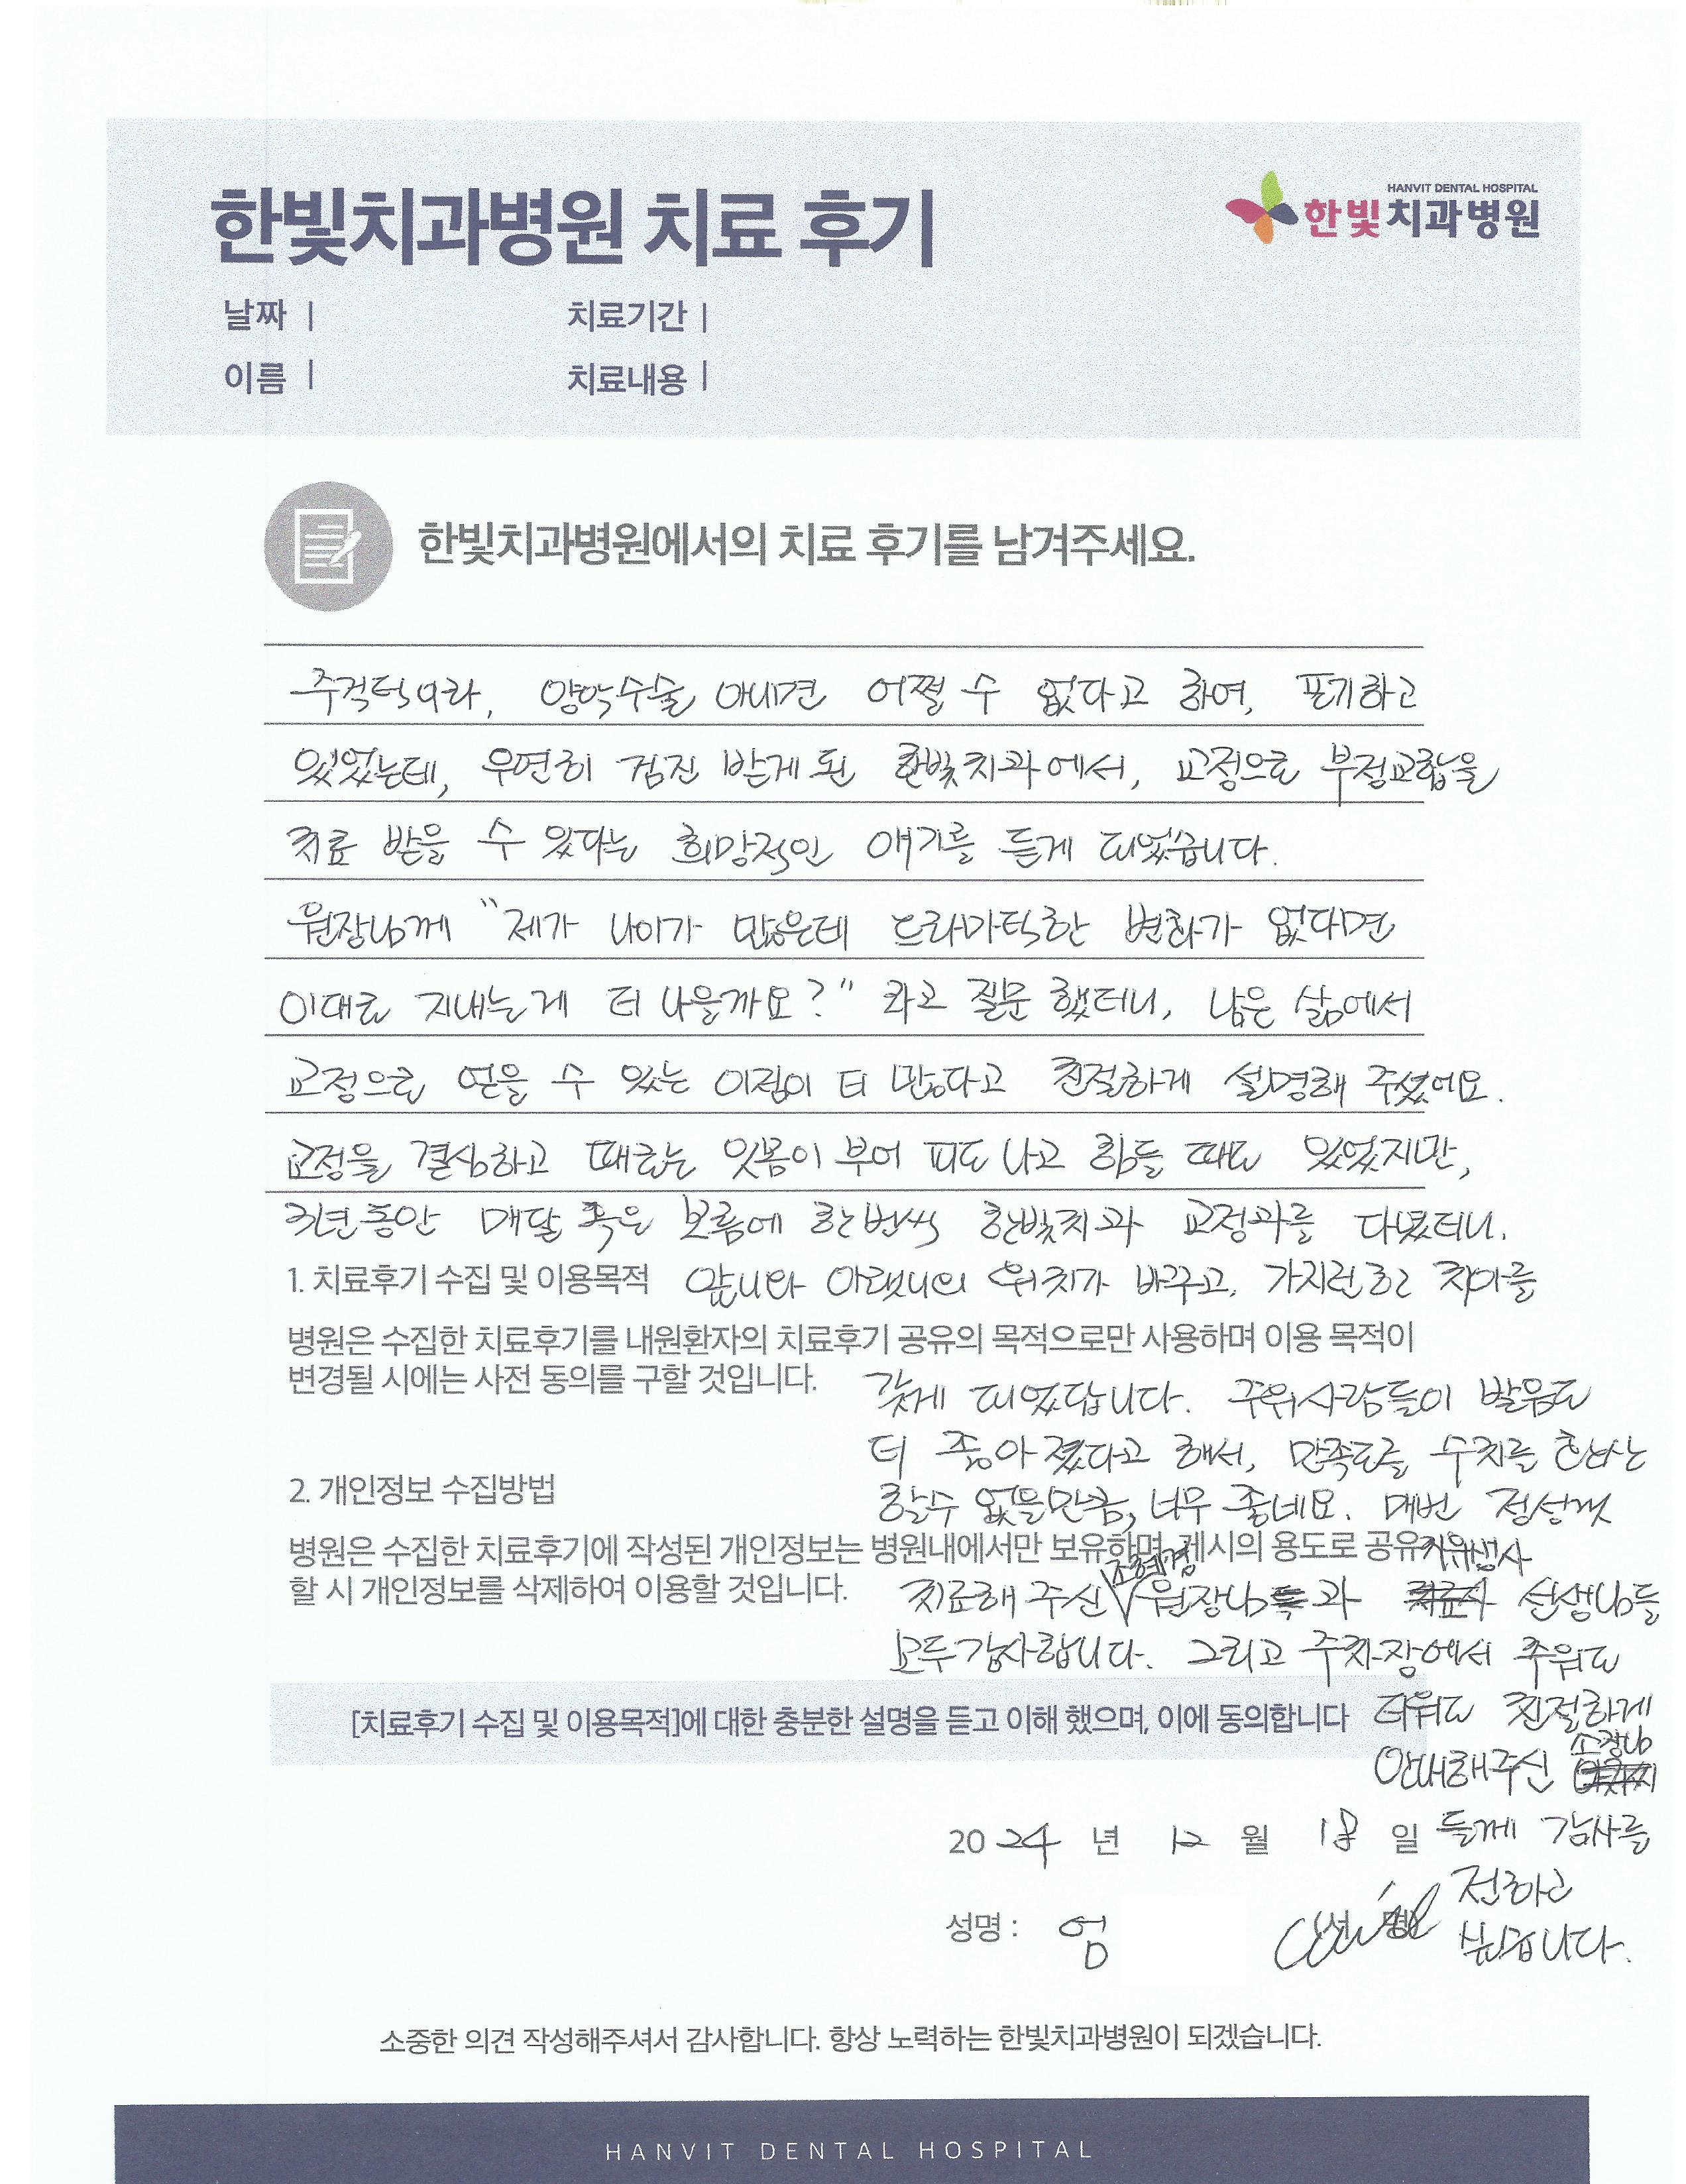 한빛치과병원 치료 후기
HANVIT DENTAL HOSPITAL
한빛치과병원
날짜 |
치료기간 |
이름 |
치료내용 |
한빛치과병원에서의 치료 후기를 남겨주세요.
주걱턱이라, 양악수술 아니면 어쩔 수 없다고 하여, 포기하고
있었는데, 우연히 검진 받게 된 한빛치과에서, 교정으로 부정교합을
치료 받을 수 있다는 희망적인 얘기를 듣게 되었습니다.
원장님께 "제가 나이가 많은데 드라마틱한 변화가 없다면
이대로 지내는게 더 나을까요?" 라고 질문 했더니, 남은 삶에서
교정으로 얻을 수 있는 이점이 더 많다고 친절하게 설명해 주셨어요.
교정을 결심하고 때로는 잇몸이 부어 피도 나고 힘들 때도 있었지만,
3년동안 매달 혹은 보름에 한번씩 한빛치과 교정과를 다녔더니,
1. 치료후기 수집 및 이용목적 앞니와 아랫니의 위치가 바뀌고, 가지런한 치아를
병원은 수집한 치료후기를 내원환자의 치료후기 공유의 목적으로만 사용하며 이용 목적이
변경될 시에는 사전 동의를 구할 것입니다.
갖게 되었답니다. 주위사람들이 발음도
더 좋아졌다고 해서, 만족도를 수치로 환산
2. 개인정보 수집방법
할수 없을만큼, 너무 좋네요. 매번 정성껏
병원은 수집한 치료후기에 작성된 개인정보는 병원내에서만 보유하며, 게시의 용도로 공유
조혜경 치위생사
할 시 개인정보를 삭제하여 이용할 것입니다.
치료해 주신 원장님과 선생님들
모두 감사합니다. 그리고 주차장에서 추워도
[치료후기 수집 및 이용목적]에 대한 충분한 설명을 듣고 이해 했으며, 이에 동의합니다
더워도 친절하게
소장님
안내해주신
2024 년 12 월 18 일
들께 감사를
전하고
성명 : 엄
싶습니다.
소중한 의견 작성해주셔서 감사합니다. 항상 노력하는 한빛치과병원이 되겠습니다.
HANVIT DENTAL HOSPITAL